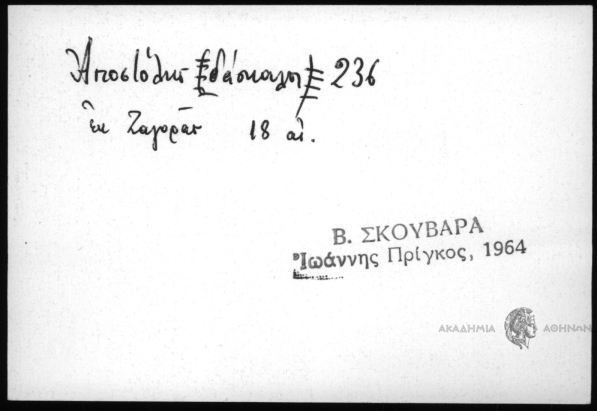 Ἀποστόλης (δάσκαλος) 236
ἐκ Ζαγορᾶς 18 αἰ.
Β. ΣΚΟΥΒΑΡΑ
Ἰωάννης Πρίγκος, 1964
ΑΚΑΔΗΜΙΑ ΑΘΗΝΩΝ